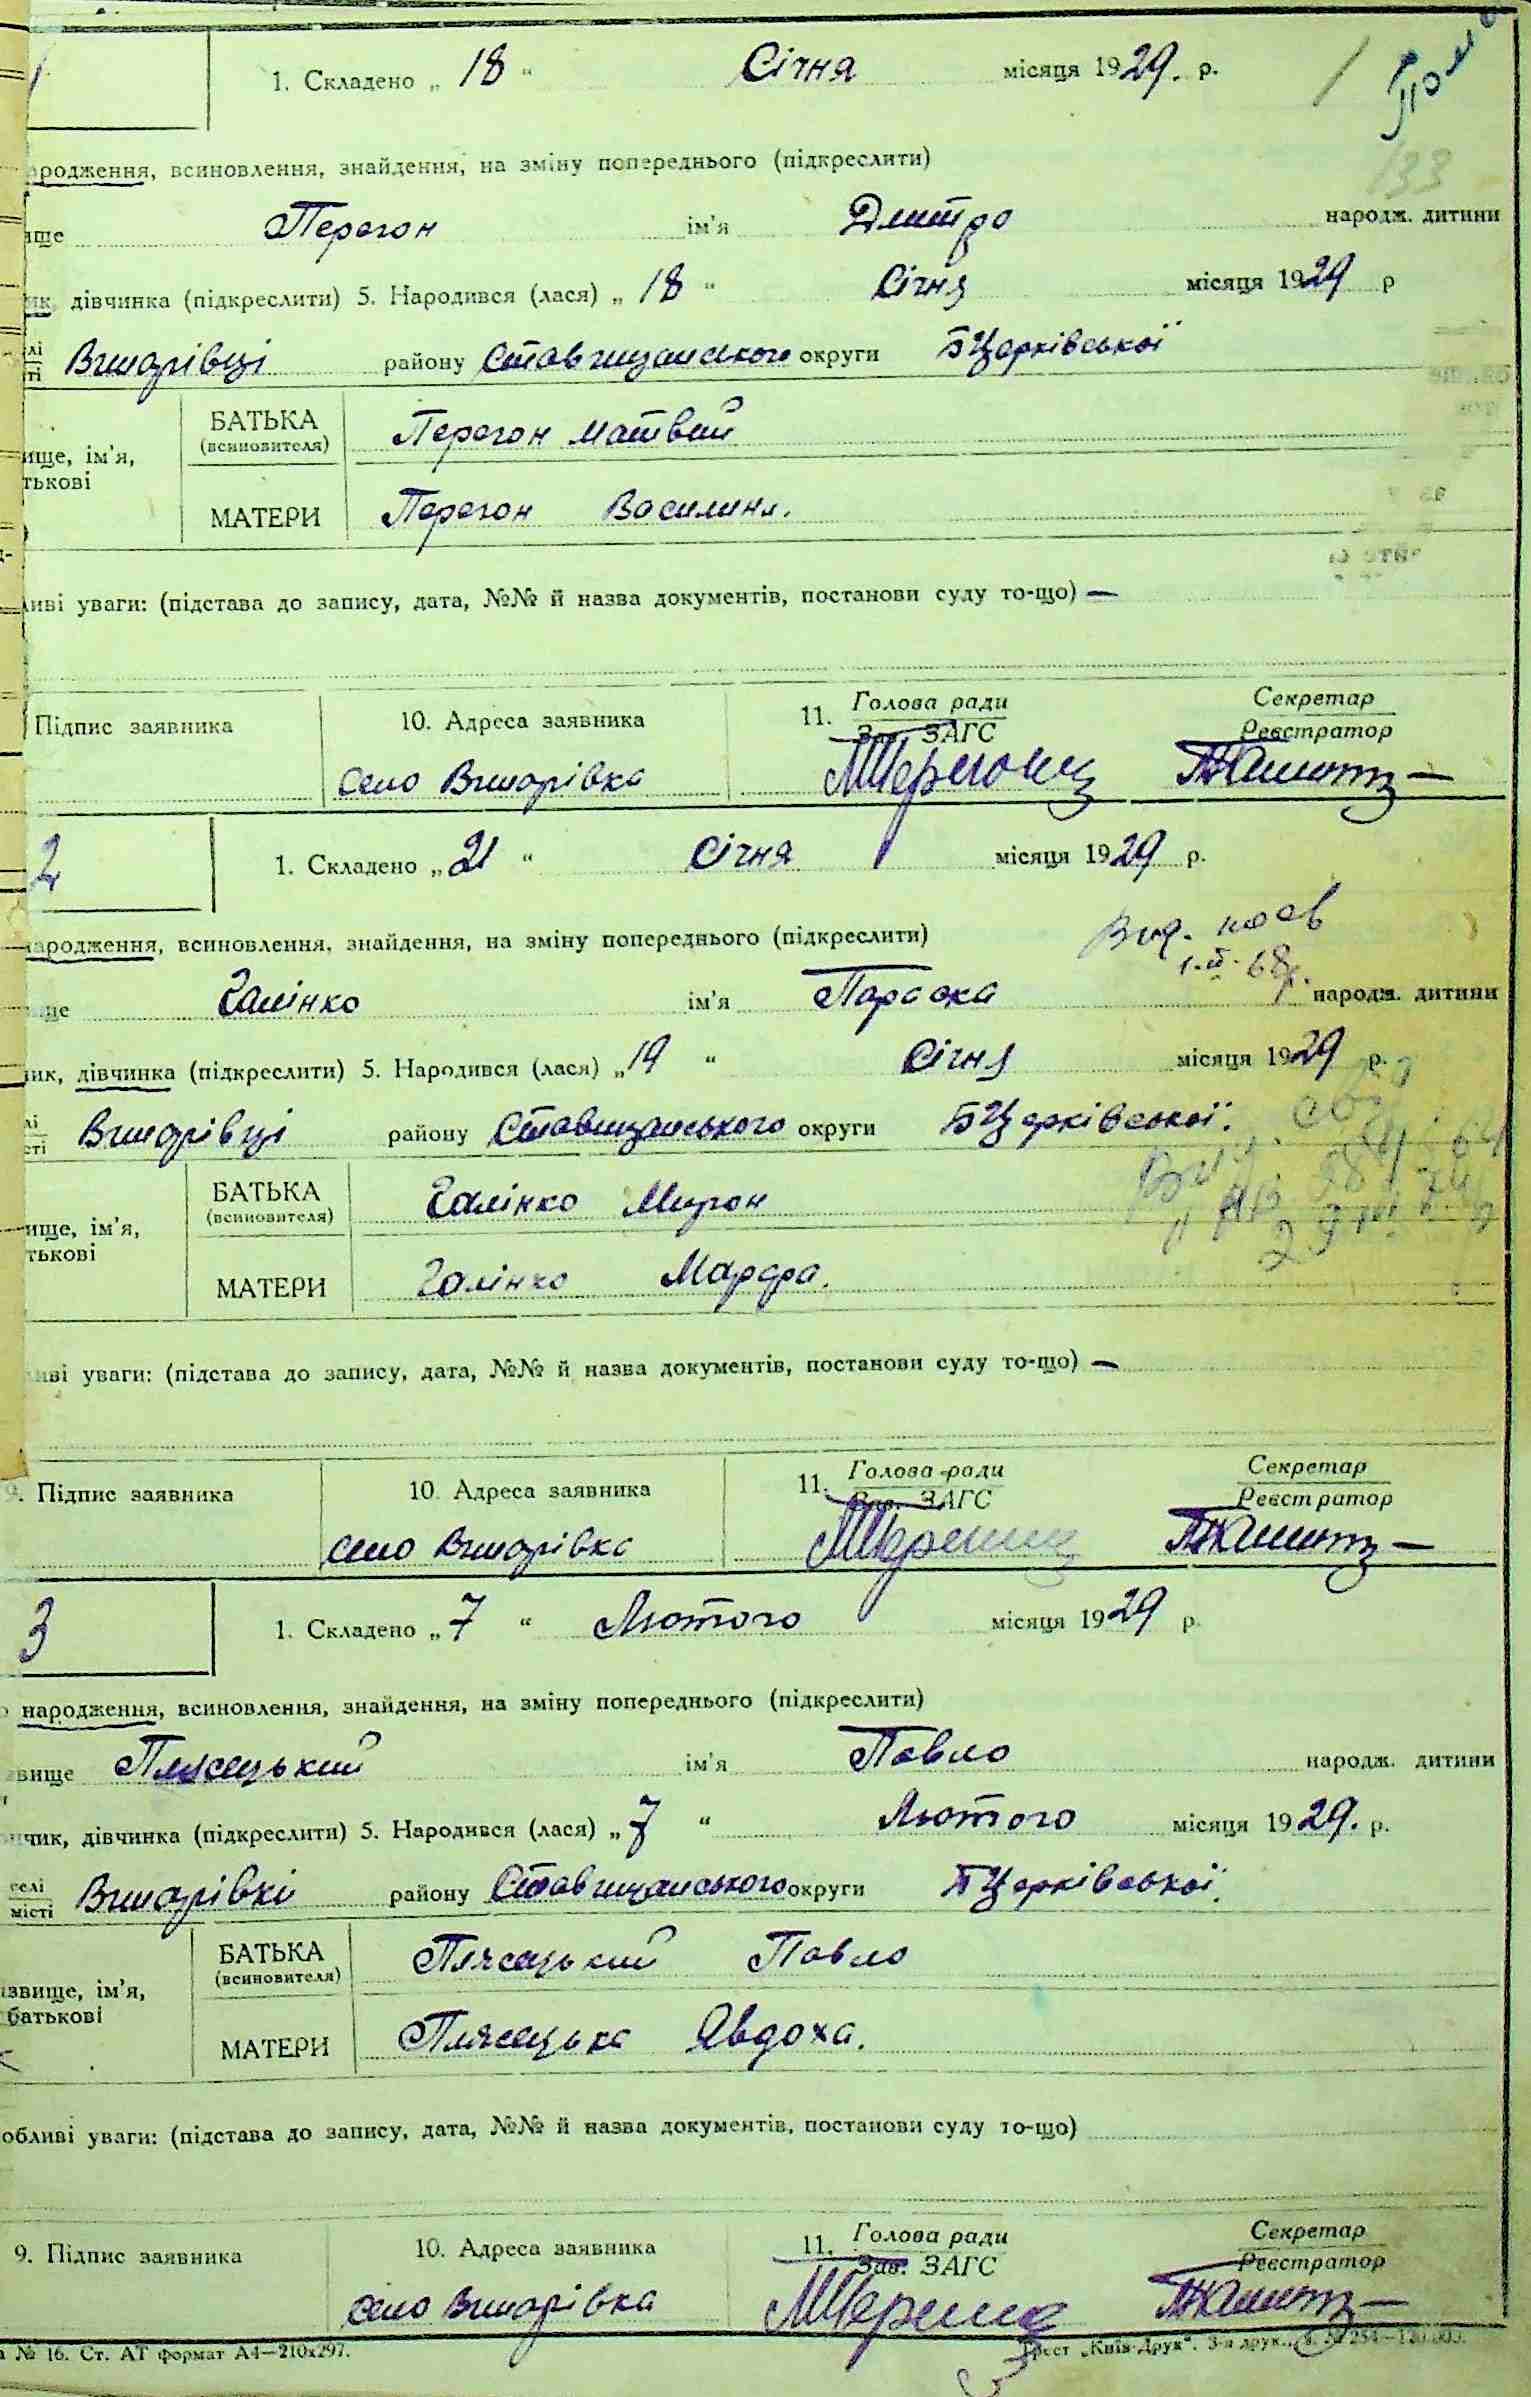 1. Складено „ 18 “ Січня місяця 1929. р.
133
ародження, всиновлення, знайдення, на зміну попереднього (підкреслити)
ище Перегон ім'я Дмитро народж. дитини
ик, дівчинка (підкреслити) 5. Народився (лася) „ 18 “ Січня місяця 1929 р
лі
ті Винарівці району Ставищанського округи БЦерківської
БАТЬКА
(всиновителя) Перегон Матвій
ище, ім'я,
тькові
МАТЕРИ Перегон Василина.
ливі уваги: (підстава до запису, дата, №№ й назва документів, постанови суду то-що) —
Підпис заявника 10. Адреса заявника 11. Голова ради Секретар
Зав. ЗАГС Реєстратор
село Винарівка
2 1. Складено „ 21 “ Січня місяця 1929 р.
народження, всиновлення, знайдення, на зміну попереднього (підкреслити)
ще Галінко ім'я Параска народж. дитини
ик, дівчинка (підкреслити) 5. Народився (лася) „ 19 “ Січня місяця 1929 р.
лі
сті Винарівці району Ставищанського округи БЦерківської.
БАТЬКА
(всиновителя) Галінко Мирон
ище, ім'я,
тькові
МАТЕРИ Галінко Марфа.
ливі уваги: (підстава до запису, дата, №№ й назва документів, постанови суду то-що) —
9. Підпис заявника 10. Адреса заявника 11. Голова ради Секретар
Зав. ЗАГС Реєстратор
село Винарівка
3 1. Складено „ 7 “ Лютого місяця 1929 р.
народження, всиновлення, знайдення, на зміну попереднього (підкреслити)
звище Плясецький ім'я Павло народж. дитини
пчик, дівчинка (підкреслити) 5. Народився (лася) „ 7 “ Лютого місяця 1929. р.
селі
місті Винарівкі району Ставищанського округи БЦерківської.
БАТЬКА
(всиновителя) Плясецький Павло
ізвище, ім'я,
батькові
МАТЕРИ Плясецька Явдоха.
обливі уваги: (підстава до запису, дата, №№ й назва документів, постанови суду то-що)
9. Підпис заявника 10. Адреса заявника 11. Голова ради Секретар
Зав. ЗАГС Реєстратор
село Винарівка
№ 16. Ст. АТ формат А4—210x297. Трест „Київ-Друк“. 3-я друк.